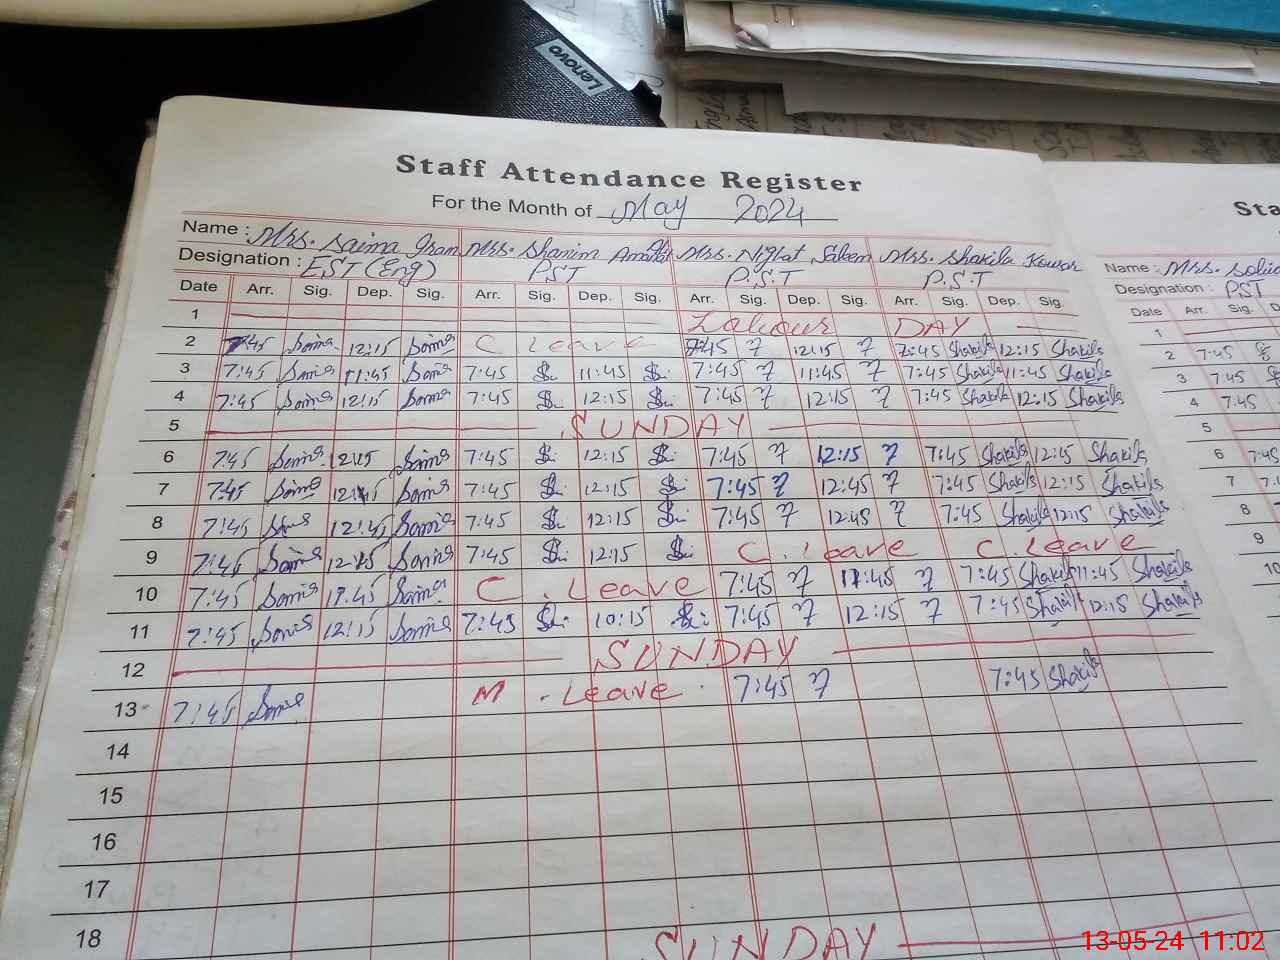 Lenovo
Staff Attendance Register
For the Month of May 2024
Name : Mrs. Saima Mrs. Shamim Mrs. Nighat Saleem Mrs. Shakila Kousar
Designation : EST (Eng) PST P.S.T P.S.T
Date Arr. Sig. Dep. Sig. Arr. Sig. Dep. Sig. Arr. Sig. Dep. Sig. Arr. Sig. Dep. Sig.
1 Labour DAY
2 7:45 Saima 12:15 Saima C Leave 7:45 12:15 7:45 Shakila 12:15 Shakila
3 7:45 Saima 11:45 Saima 7:45 11:45 7:45 11:45 7:45 Shakila 11:45 Shakila
4 7:45 Saima 12:15 Saima 7:45 12:15 7:45 12:15 7:45 Shakila 12:15 Shakila
5 SUNDAY
6 7:45 Saima 12:45 Saima 7:45 12:15 7:45 12:15 7:45 Shakila 12:45 Shakila
7 7:45 Saima 12:45 Saima 7:45 12:15 7:45 12:45 7:45 Shakila 12:15 Shakila
8 7:45 Saima 12:45 Saima 7:45 12:15 7:45 12:45 7:45 Shakila 12:15 Shakila
9 7:45 Saima 12:45 Saima 7:45 12:15 C. Leave C. Leave
10 7:45 Saima 11:45 Saima C. Leave 7:45 11:45 7:45 Shakila 11:45 Shakila
11 7:45 Saima 12:15 Saima 7:45 10:15 7:45 12:15 7:45 Shakila 12:15 Shakila
12 SUNDAY
13 7:45 Saima M. Leave 7:45 7:45 Shakila
14
15
16
17
18 SUNDAY
Sta
Name : Mrs.
Designation : PST
Date Arr. Sig.
1
2 7:45
3 7:45
4 7:45
5
6 7:45
7
8
9
10
13-05-24 11:02